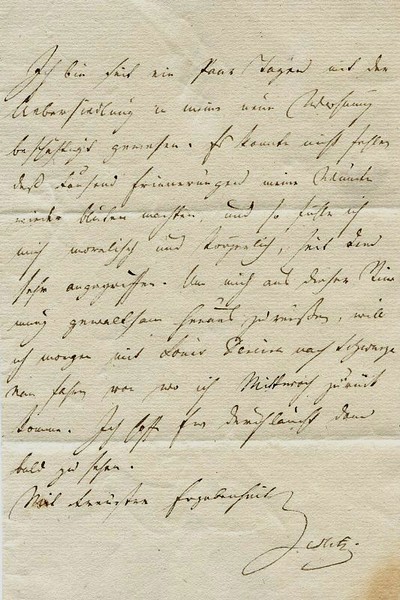 Ich bin seit ein Paar Tagen mit der
Uebersiedlung in meine neue Wohnung
beschäftigt gewesen. Es konnte nicht fehlen
daß tausend Erinnerungen meine Wunde
wieder bluten machten, und so fühle ich
mich moralisch und körperlich, seit dem
sehr angegriffen. Um mich aus dieser Stim
mung gewaltsam heraus zu reißen, will
ich morgen mit Louis Pereira nach Schwarze
nau fahren von wo ich Mittwoch zurück
komme. Ich hoffe Ew Durchlaucht dann
bald zu sehen.
Mit treuster Ergebenheit
Zedlitz.